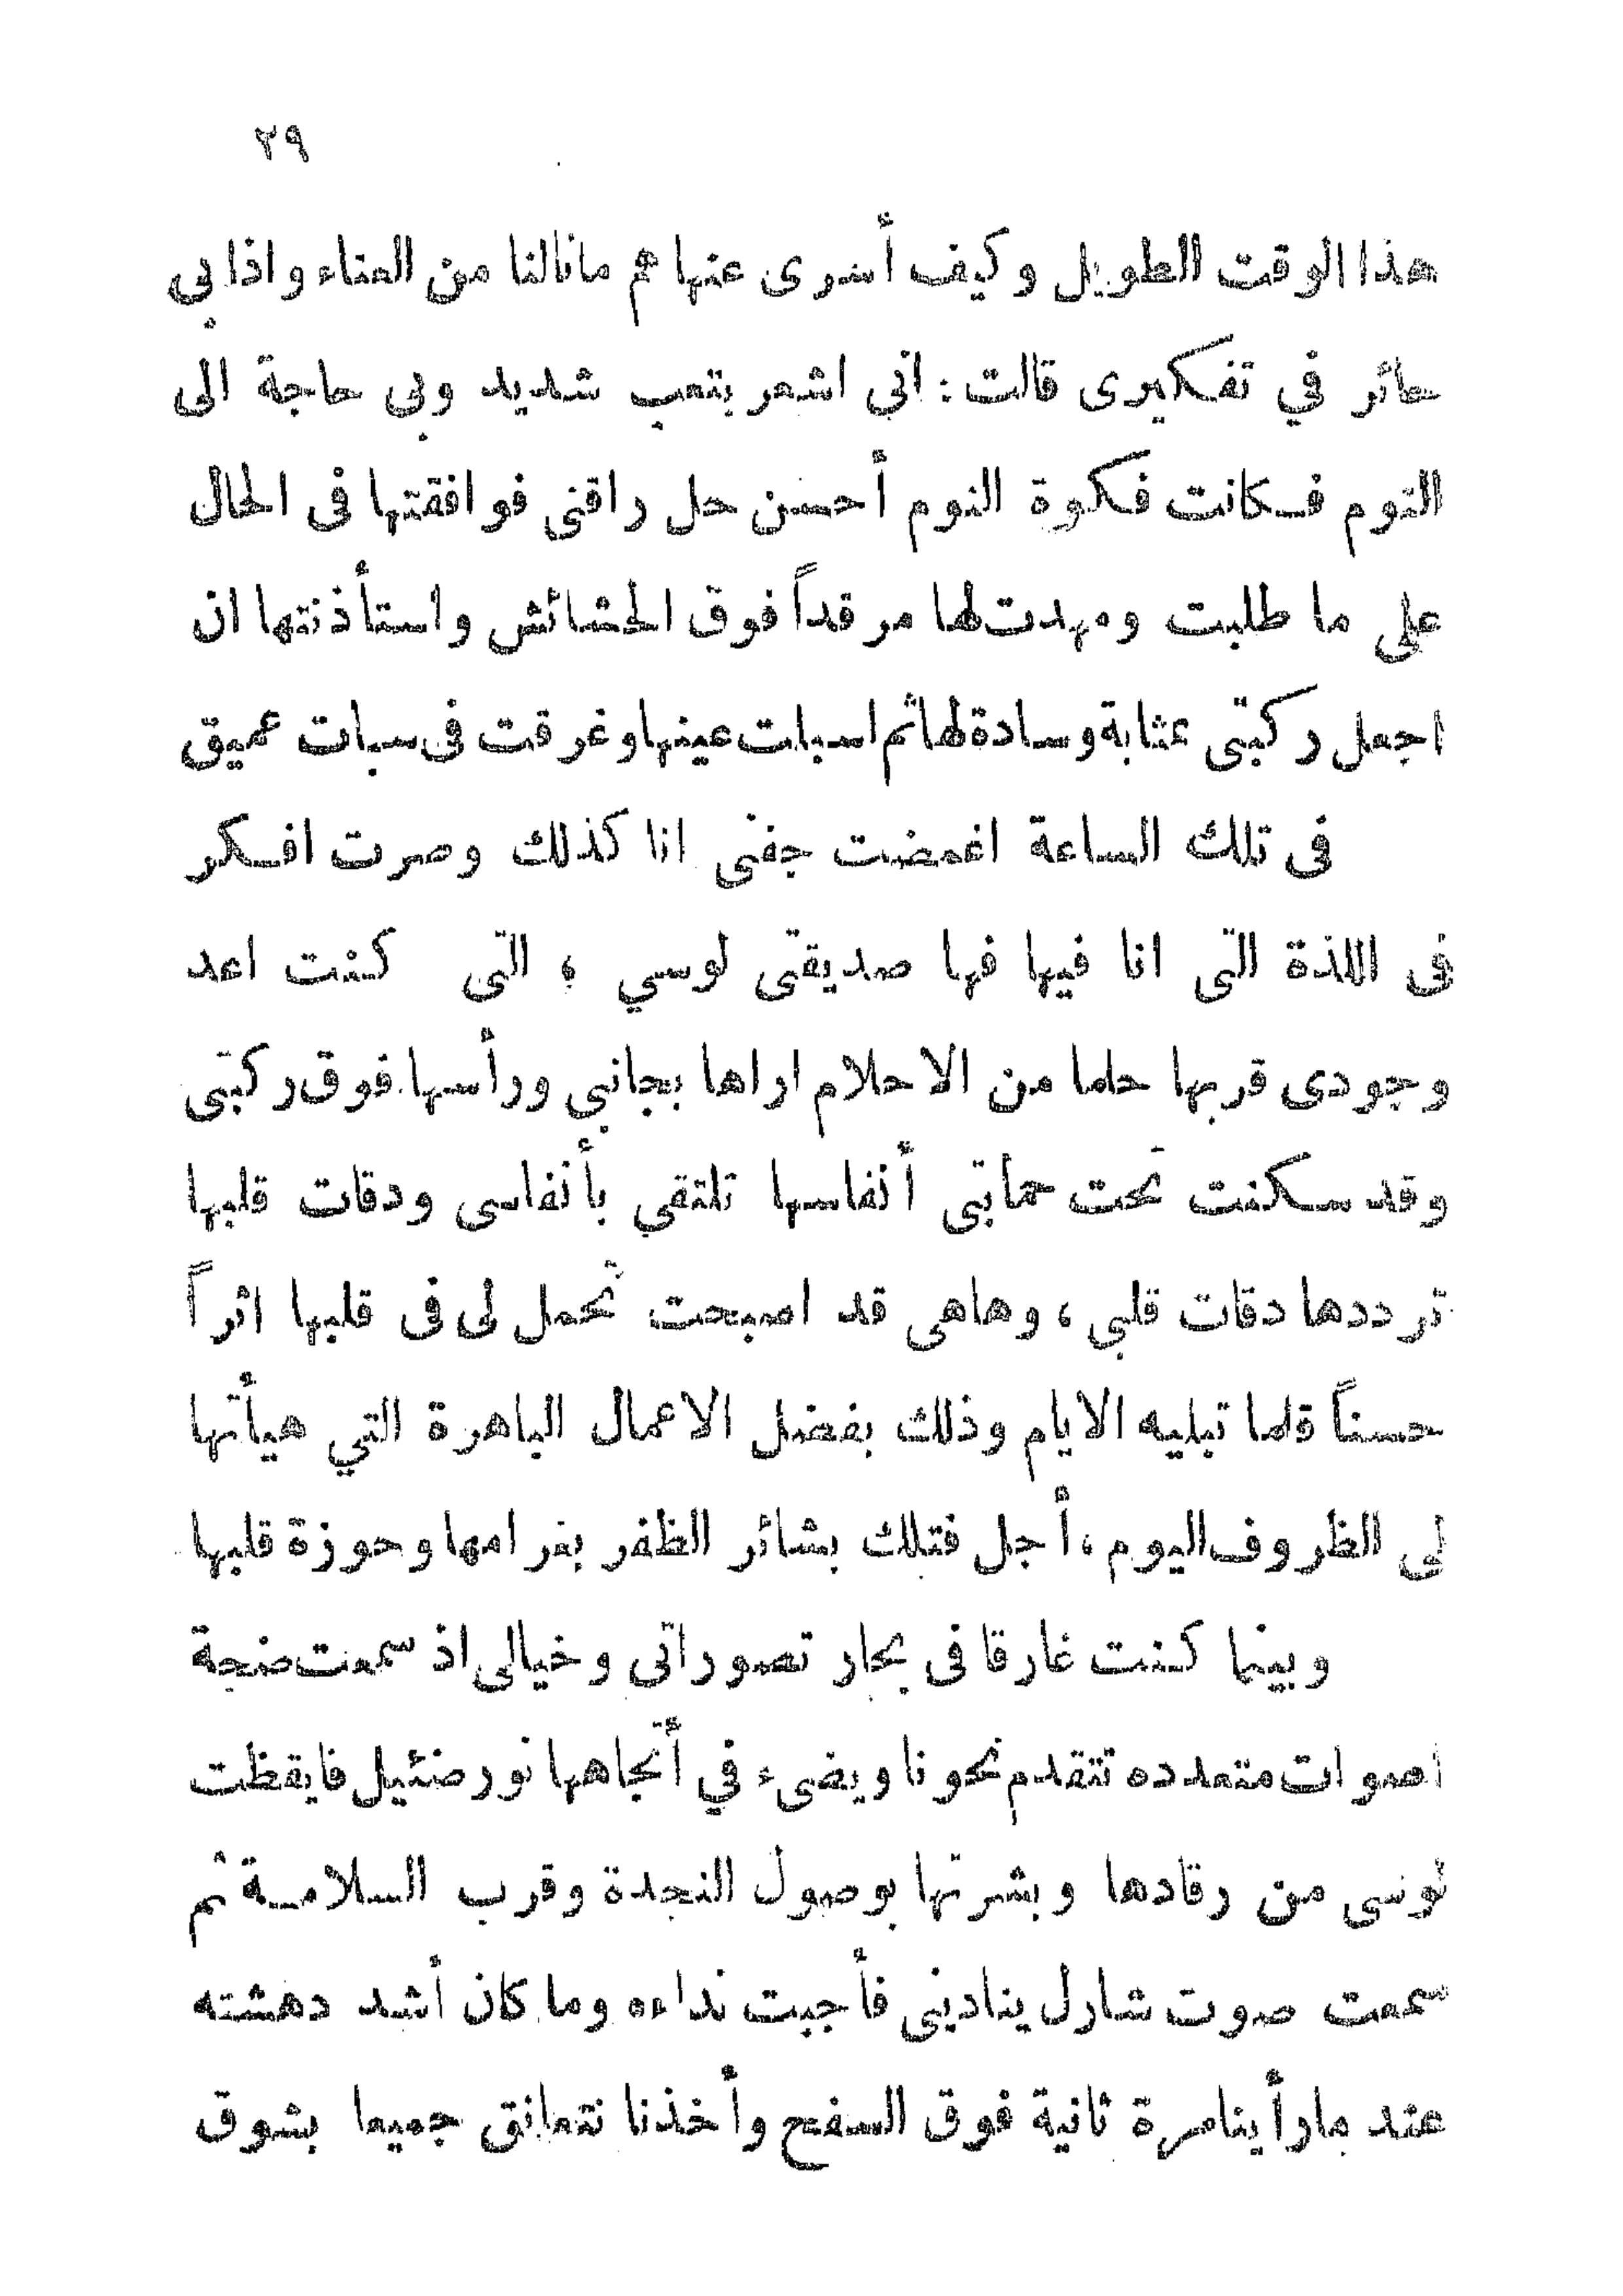 ٢٩
هذا الوقت الطويل وكيف أسرى عنها هم مانالنا من العناء واذا بي
حائر في تفكيرى قالت : انى اشعر بتعب شديد وبي حاجة الى
النوم فكانت فكرة النوم أحسن حل راقنى فوافقتها فى الحال
على ما طلبت ومهدت لها مرقداً فوق الحشائش واستأذنتها ان
اجعل ركبتى بمثابة وسادة لها ثم اسبلت عينها وغرقت فى سبات عميق
فى تلك الساعة اغمضت جفنى انا كذلك وصرت افكر
فى اللذة التى انا فيها فها صديقتى لوسي ؛ التى كنت اعد
وجودى قربها حلما من الاحلام اراها بجانبي ورأسها فوق ركبتى
وقد سكنت تحت حمايتى أنفاسها تلتقي بأنفاسى ودقات قلبها
ترددها دقات قلبي ، وهاهى قد اصبحت تحمل لى فى قلبها اثراً
حسناً قلما تبليه الايام وذلك بفضل الاعمال الباهرة التي هيأتها
لى الظروف اليوم ، أجل فتلك بشائر الظفر بغرامها وحوزة قلبها
وبينما كنت غارقا فى بحار تصوراتى وخيالى اذ سمعت ضجة
اصوات متعدده تتقدم نحونا ويضىء في أتجاهها نور ضئيل فايقظت
لوسى من رقادها وبشرتها بوصول النجدة وقرب السلامة ثم
سمعت صوت شارل ينادينى فأجبت نداءه وما كان أشد دهشته
عند مارأينا مرة ثانية فوق السفح وأخذنا نتعانق جميعا بشوق